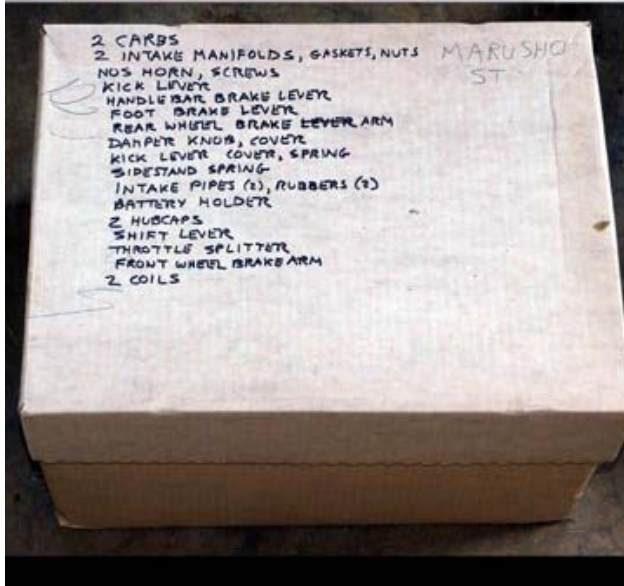 2 CARBS
2 INTAKE MANIFOLDS, GASKETS, NUTS
NOS HORN, SCREWS
KICK LEVER
HANDLEBAR BRAKE LEVER
FOOT BRAKE LEVER
REAR WHEEL BRAKE LEVER ARM
DAMPER KNOB, COVER
KICK LEVER COVER, SPRING
SIDESTAND SPRING
INTAKE PIPES (2), RUBBERS (2)
BATTERY HOLDER
2 HUBCAPS
SHIFT LEVER
THROTTLE SPLITTER
FRONT WHEEL BRAKE ARM
2 COILS
MARUSHO
ST